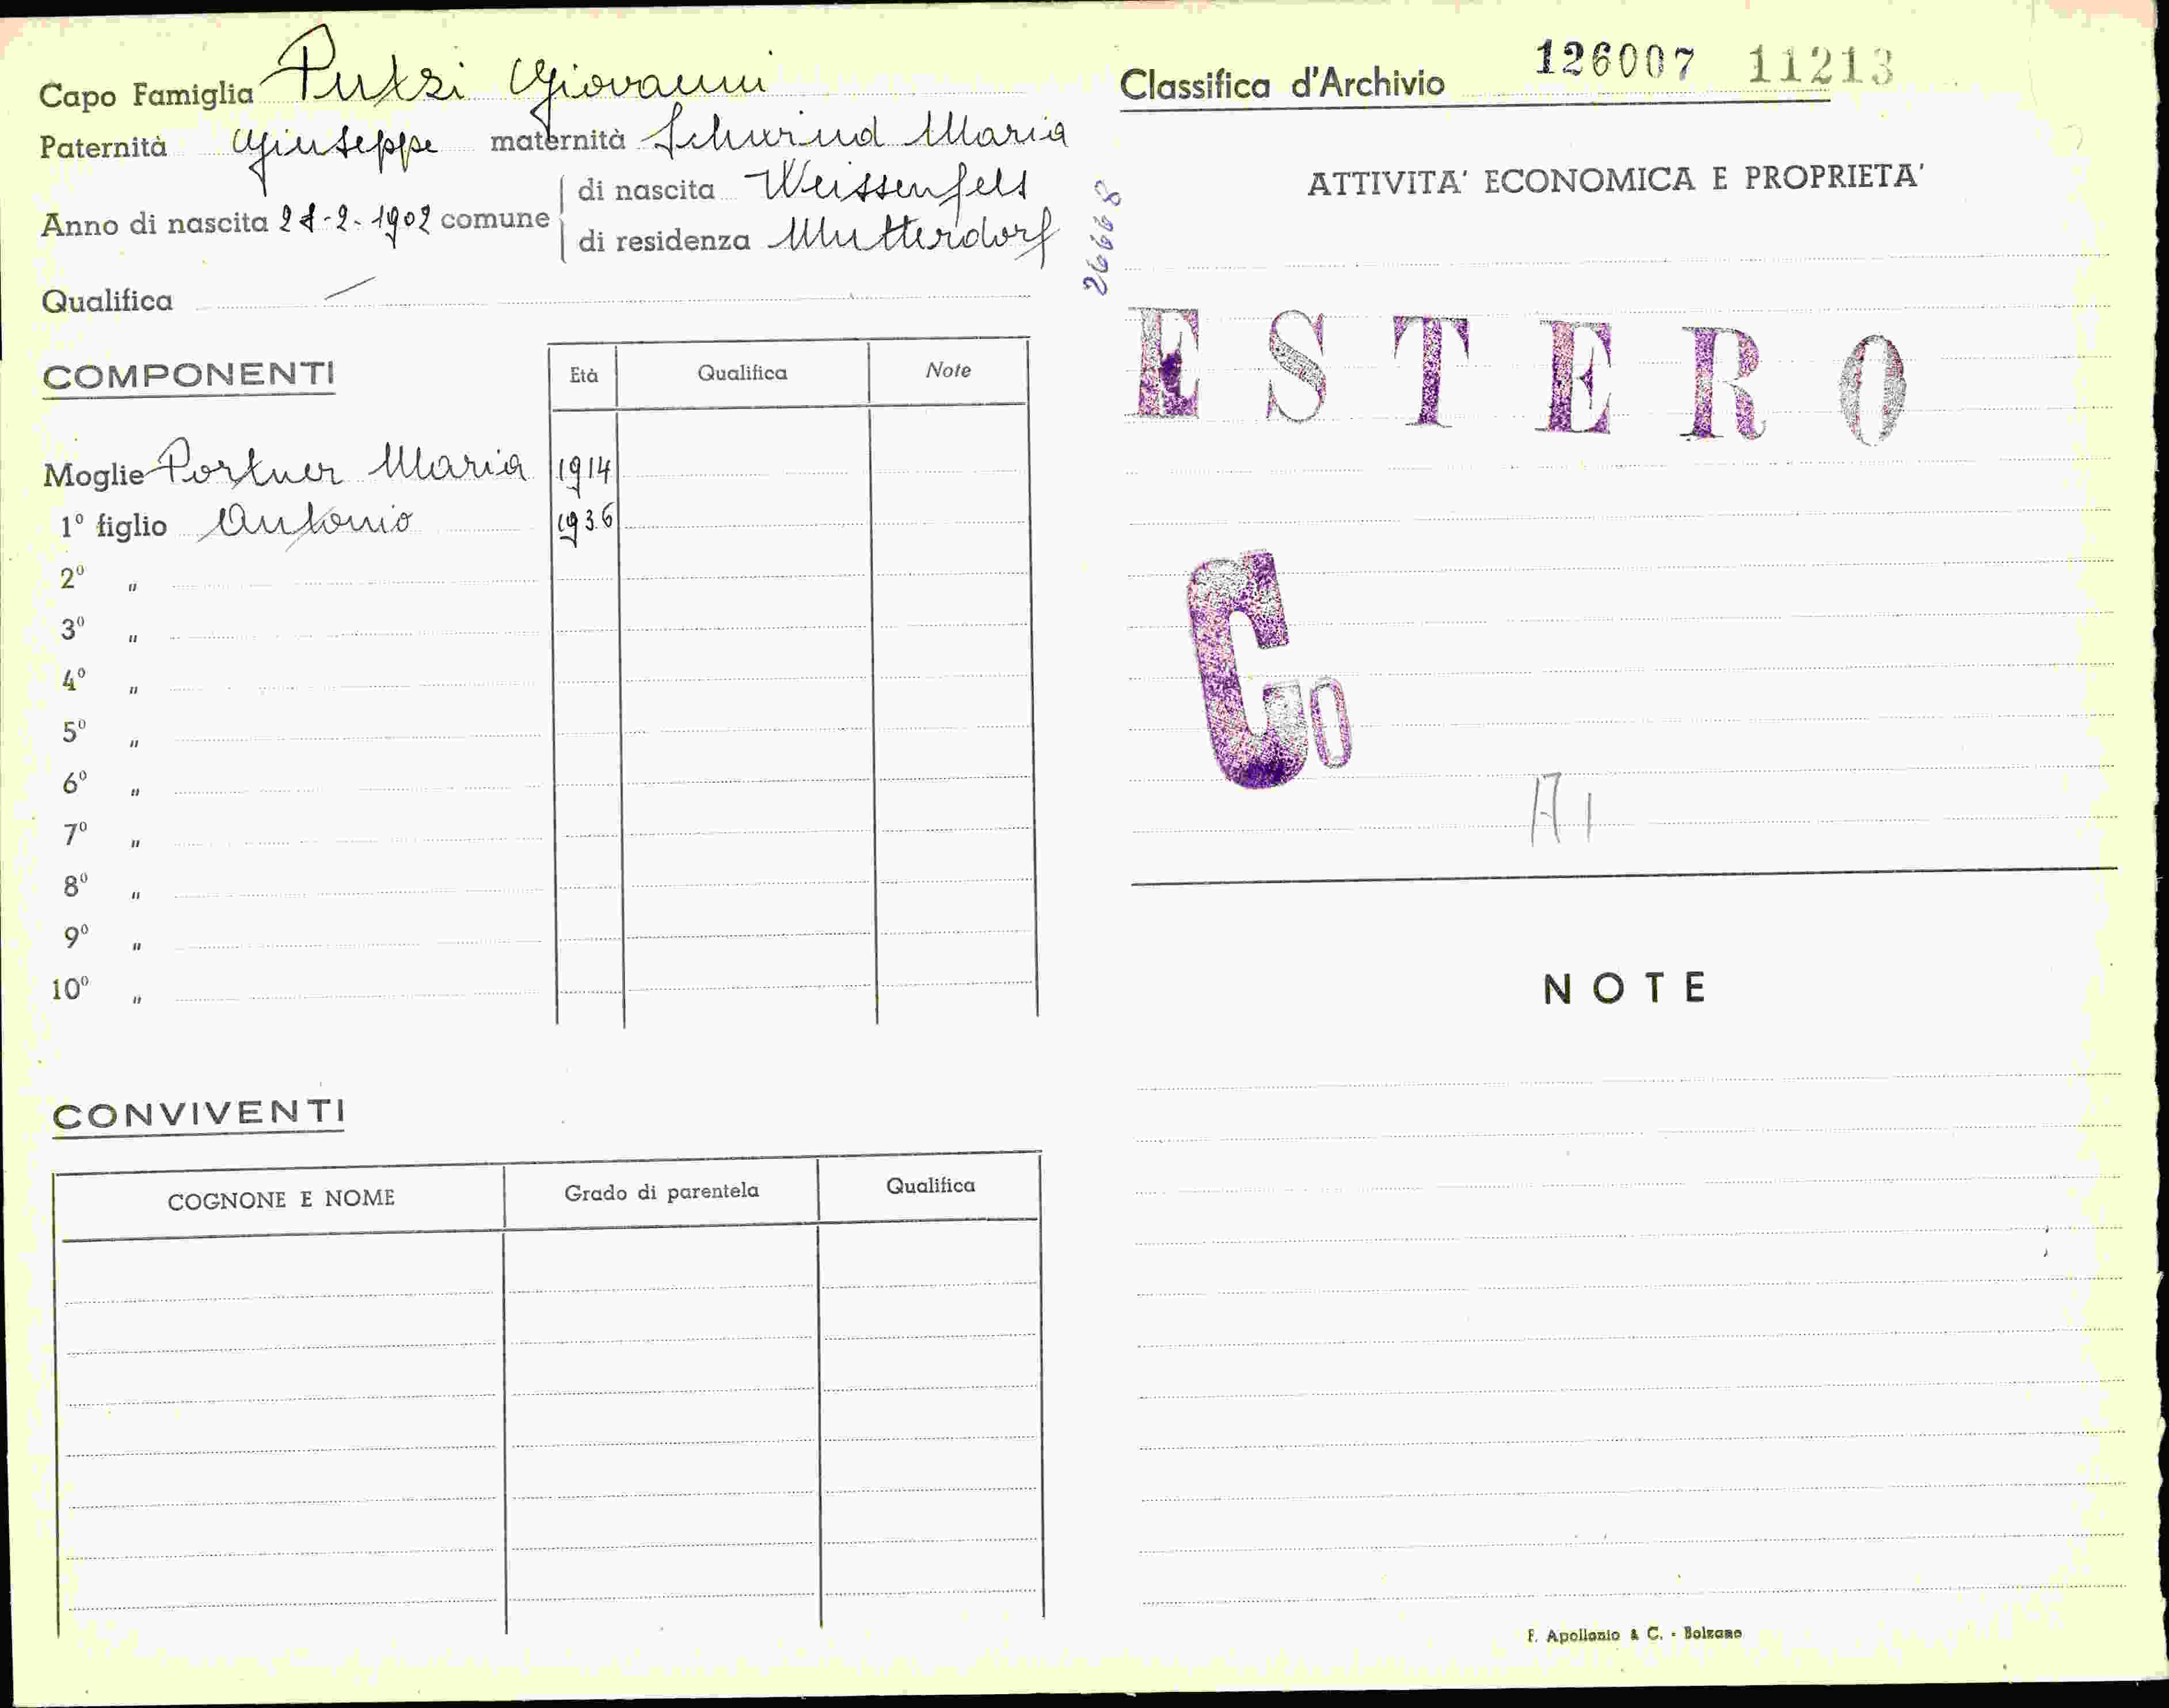 Capo Famiglia Putzi Giovanni
Paternità Giuseppe maternità Schwind Maria
Anno di nascita 21-2-1902 comune
di nascita Weissenfels
di residenza Mutterdorf
Qualifica
COMPONENTI Età Qualifica Note
Moglie Portner Maria 1914
1º figlio Antonio 1936
2º "
3º "
4º "
5º "
6º "
7º "
8º "
9º "
10º "
CONVIVENTI
COGNONE E NOME Grado di parentela Qualifica
Classifica d'Archivio 126007 11213
26668
ATTIVITA' ECONOMICA E PROPRIETA'
ESTERO
Co
A1
NOTE
F. Apollonio & C. - Bolzano